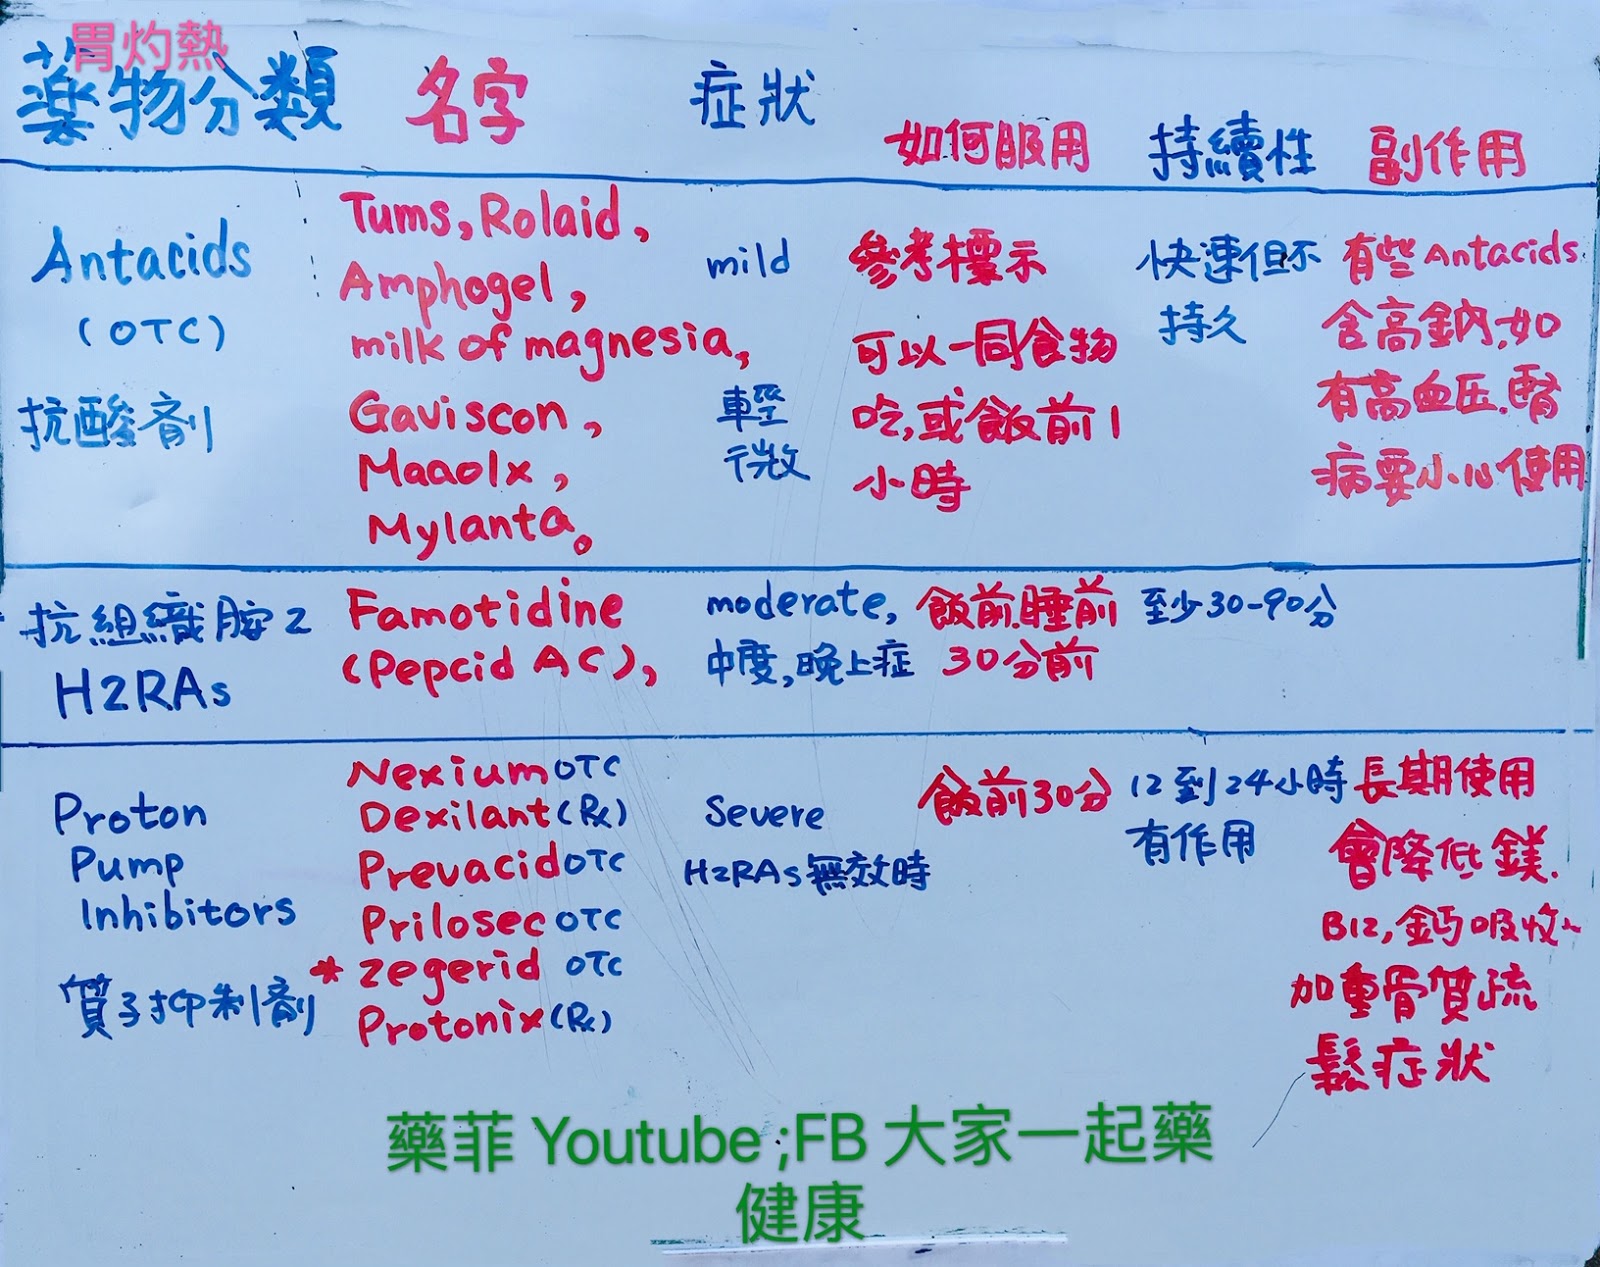 胃灼熱
藥物分類 名字 症狀 如何服用 持續性 副作用
Antacids
(OTC)
抗酸劑
Tums, Rolaid,
Amphogel,
milk of magnesia,
Gaviscon,
Maaolx,
Mylanta。
mild
輕
微
參考標示
可以一同食物
吃,或飯前1
小時
快速但不
持久
有些Antacids
含高鈉,如
有高血压.腎
病要小心使用
抗組織胺2
H2RAs
Famotidine
(Pepcid AC),
moderate,
中度,晚上症
飯前.睡前
30分前
至少30-90分
Proton
Pump
Inhibitors
質子抑制劑
Nexium OTC
Dexilant (Rx)
Prevacid OTC
Prilosec OTC
*Zegerid OTC
Protonix (Rx)
Severe
H2RAs無效時
飯前30分
12到24小時
有作用
長期使用
會降低鎂.
B12,鈣吸收~
加重骨質疏
鬆症狀
藥菲 Youtube ;FB 大家一起藥
健康